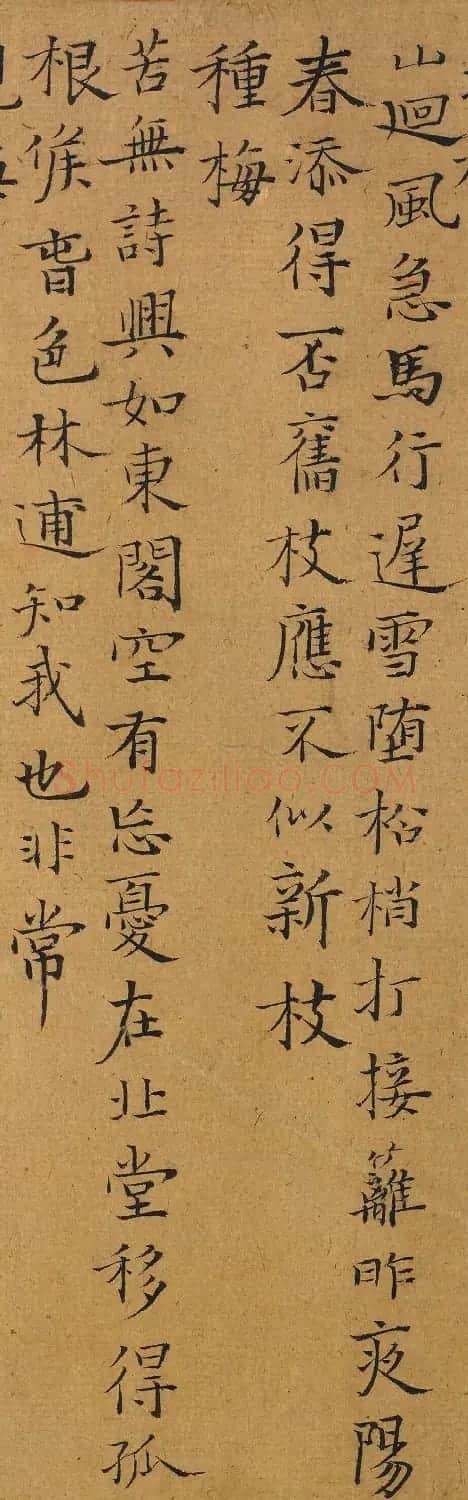 山迴風急馬行遲雪堕松梢打接籬昨夜陽
春添得否舊枝應不似新枝
種梅
苦無詩興如東閣空有忘憂在北堂移得孤
根候春色林逋知我也非常
shufaziliao.COM